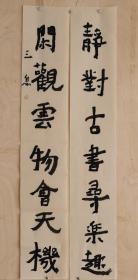 靜對古書尋樂趣
閑觀雲物會天機